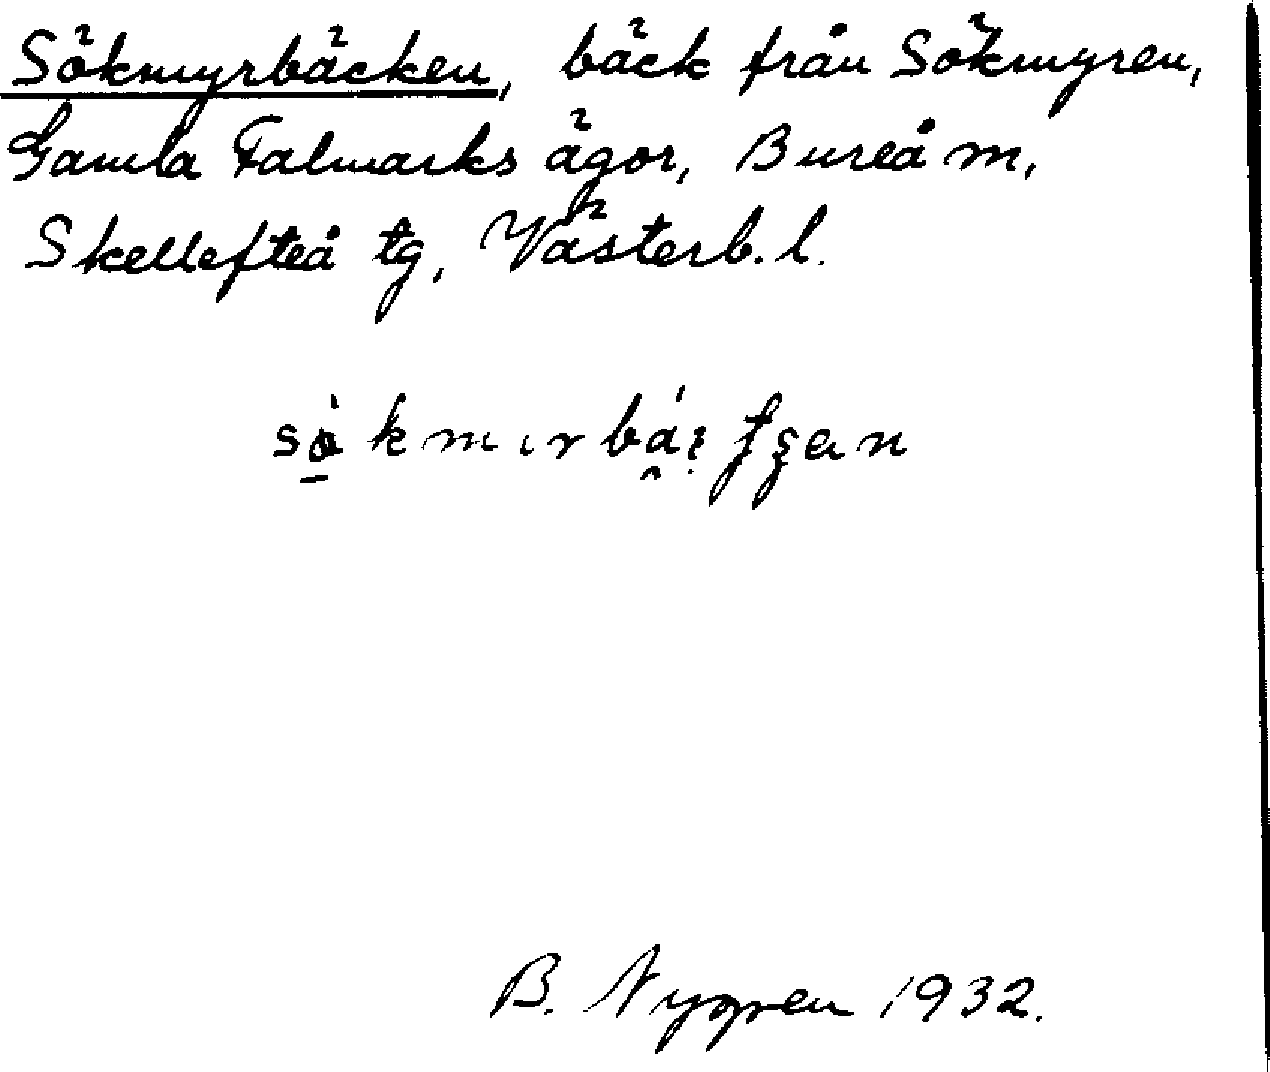 Sökmyrbäcken, bäck från Sökmyren,
Gamla Falmarks ägor, Bureå m,
Skellefteå tg, Västerb. l.
B. Nygren 1932.